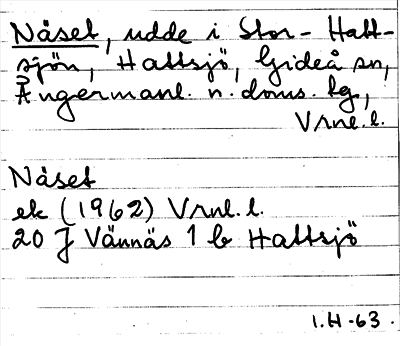 Näset, udde i Stor-Hatt-
sjön, Hattsjö, Gideå sn,
Ångermanl. n. doms. tg,
Vrnl. l.
Näset
ek (1962) Vrnl. l.
20 J Vännäs 1 b Hattsjö
I.H-63.